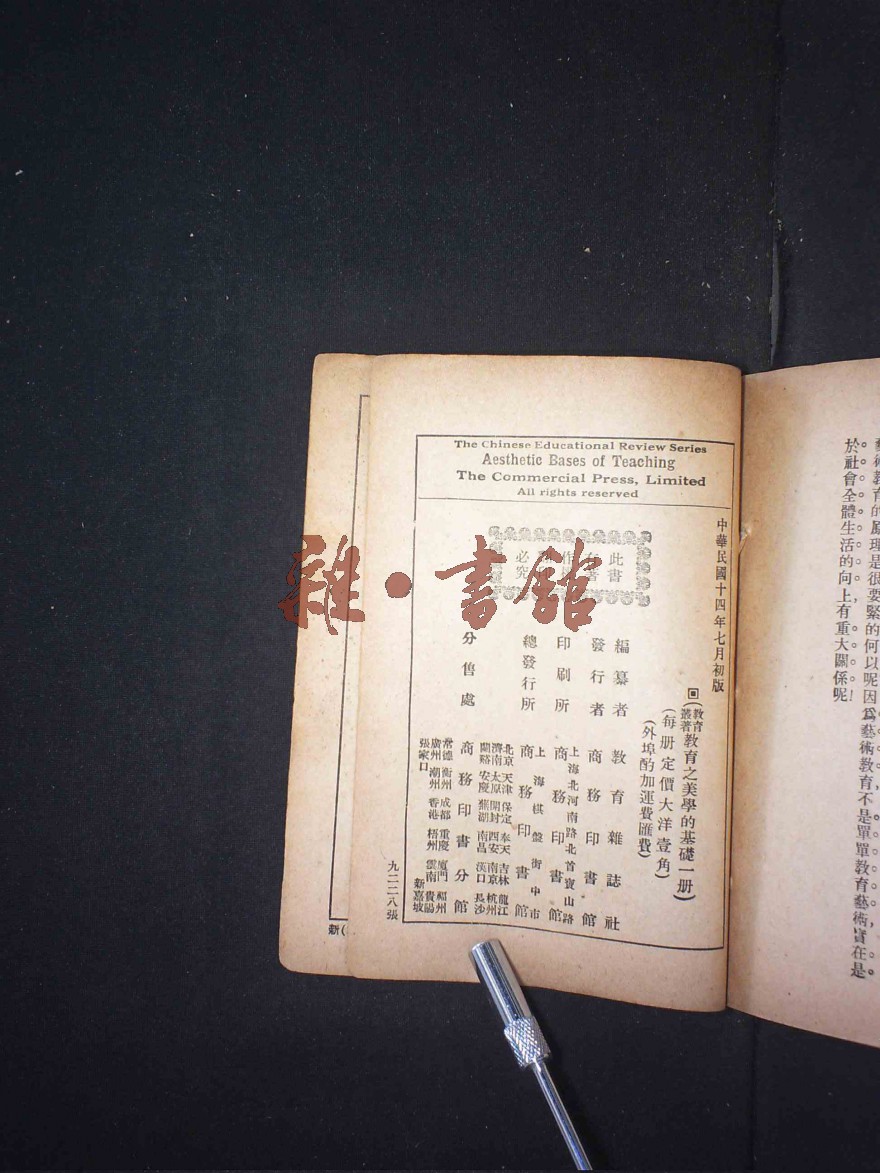 藝術教育的原理是很要緊的何以呢因爲藝術教育不是單單教育藝術，實在是
於社會全體生活的向上有重大關係呢！
The Chinese Educational Review Series
Aesthetic Bases of Teaching
The Commercial Press, Limited
All rights reserved
中華民國十四年七月初版
教育叢著
教育之美學的基礎一册
（每册定價大洋壹角）
（外埠酌加運費匯費）
此書
必究
編纂者 教育雜誌社
發行者 商務印書館
上海北河南路北首寶山路
印刷所 商務印書館
上海棋盤街中市
總發行所 商務印書館
北京 天津 保定 奉天 吉林 龍江
濟南 太原 開封 西安 南京 杭州
安慶 蕪湖 南昌 漢口 長沙
分售處 商務印書分館
常德 衡州 成都 重慶 廈門 福州
廣州 潮州 香港 梧州 雲南 貴陽
張家口 新嘉坡
九二二八張
新(
雜·書館